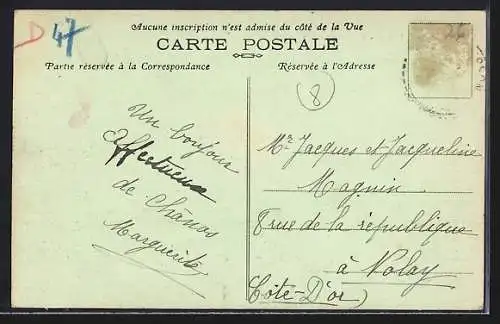 D 47
Aucune inscription n'est admise du côté de la Vue
CARTE POSTALE
Partie réservée à la Correspondance
Réservée à l'Adresse
8
Un bonjour
affectueux
de Chânas
Marguerite
Mr Jacques et Jacqueline
Magnin
rue de la république
à Nolay
Côte-D'or)